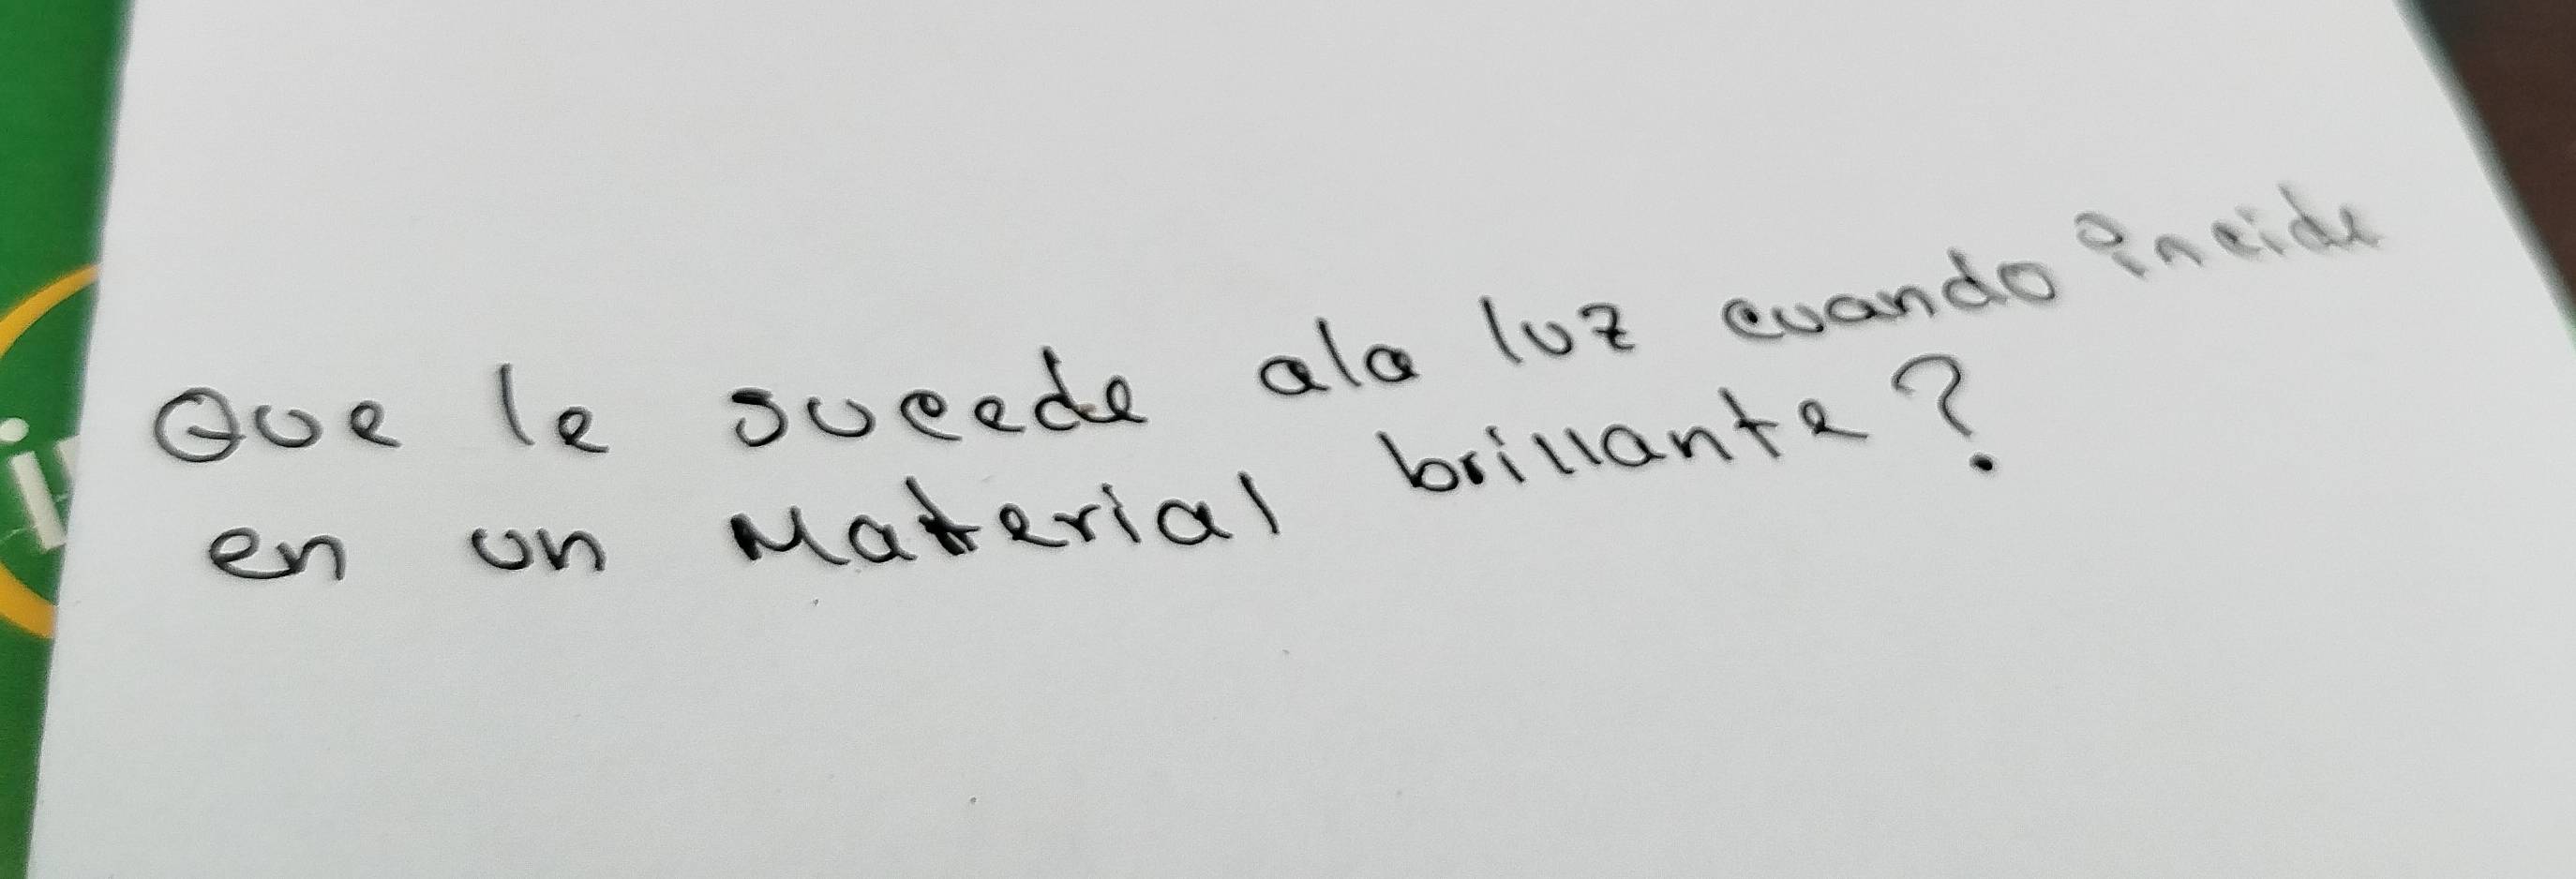 Que le sucede ala luz cuando incide
en un Material brillante?